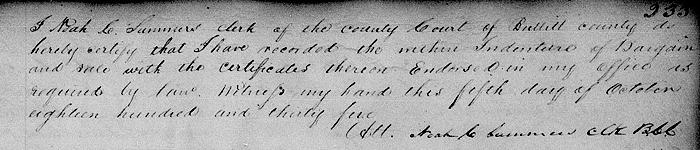 333
I Noah C Summers Clerk of the county Court of Bullitt county do
hereby certify that I have recorded the within Indenture of Bargain
and sale with the certificates thereon Endorsed in my office as
required by law. Witness my hand this fifth day of October
eighteen hundred and thirty five
Att. Noah C Summers Clk BCC